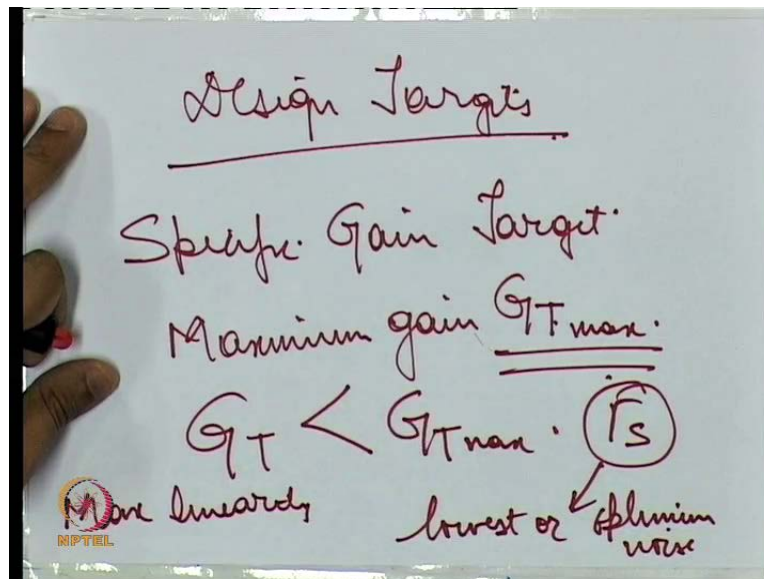 Design Targets
Specific Gain Target.
Maximum gain G_T max.
G_T < G_T max. Γ_S
More linearity
lowest or optimum
noise
NPTEL